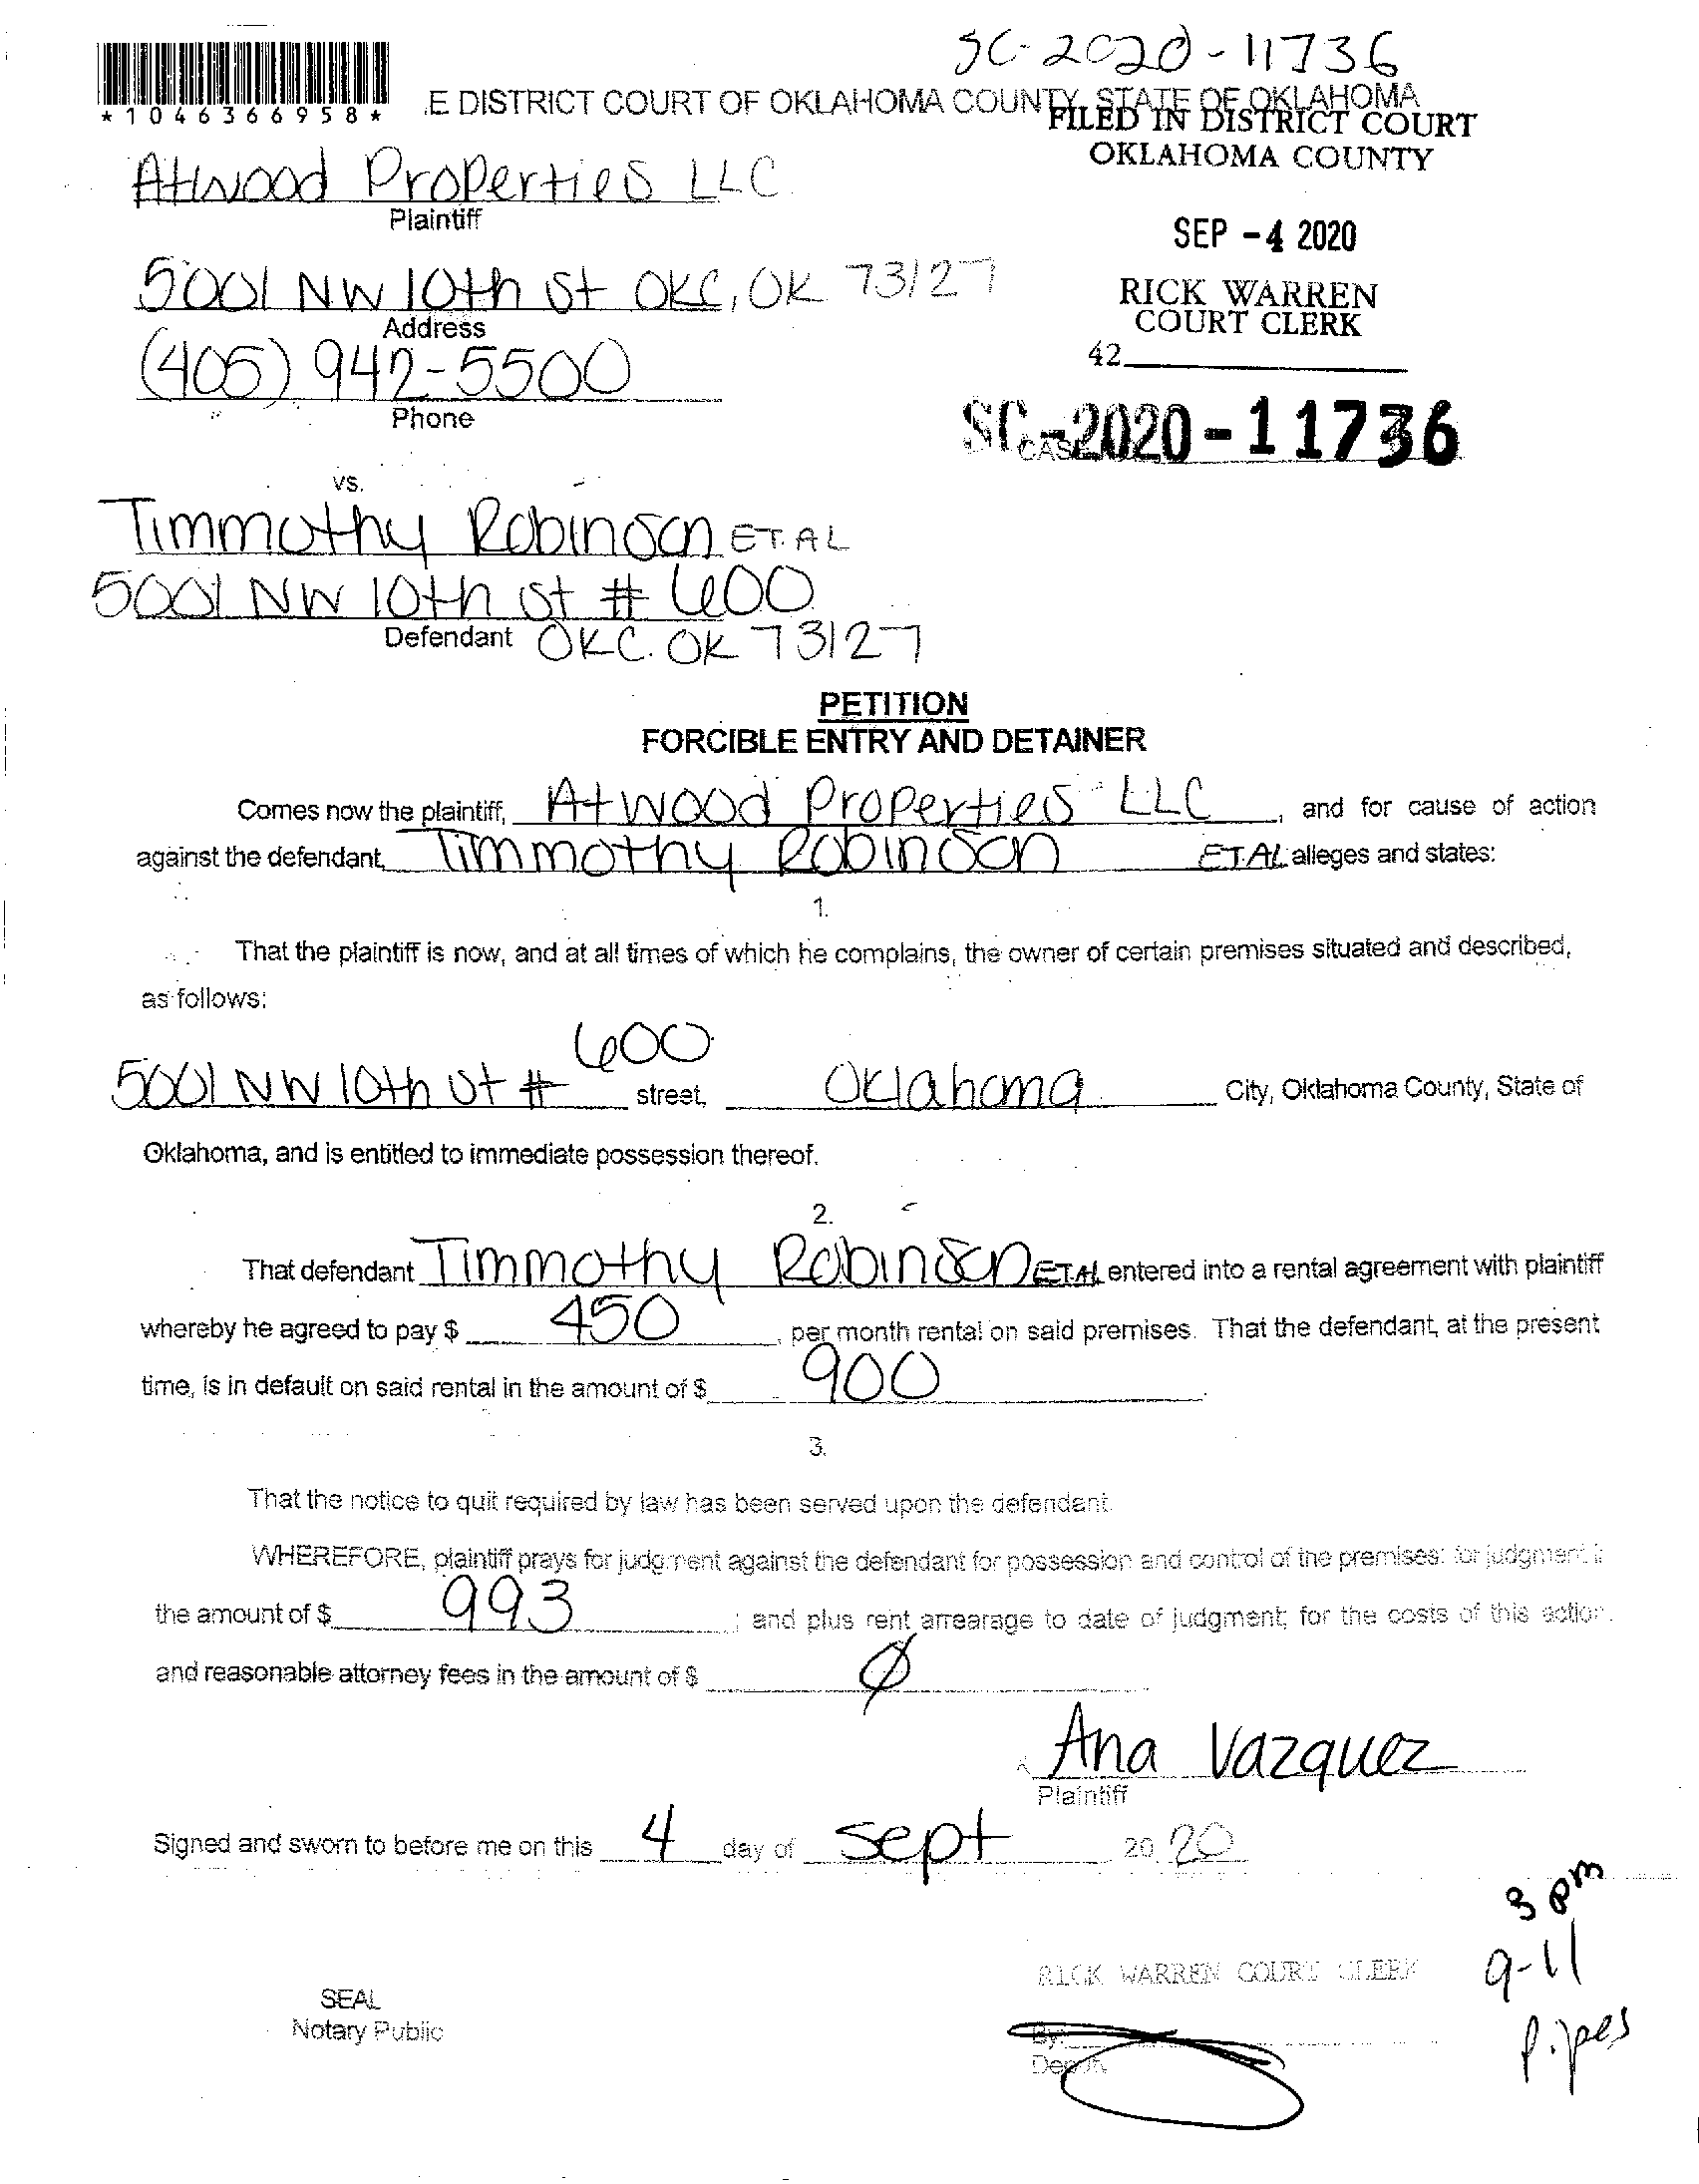 SC-2020-11736
*1046366958*
.E DISTRICT COURT OF OKLAHOMA COUNTY, STATE OF OKLAHOMA
FILED IN DISTRICT COURT
OKLAHOMA COUNTY
Atwood Properties LLC
Plaintiff
SEP -4 2020
5001 NW 10th St OKC, OK 73127
Address
RICK WARREN
COURT CLERK
(405) 942-5500
Phone
42
SC-2020-11736
CASE
vs.
Timmothy Robinson ET. AL
5001 NW 10th St # 600
Defendant OKC. OK 73127
PETITION
FORCIBLE ENTRY AND DETAINER
Comes now the plaintiff, Atwood Properties LLC, and for cause of action
against the defendant, Timmothy Robinson ET.AL alleges and states:
1.
That the plaintiff is now, and at all times of which he complains, the owner of certain premises situated and described,
as follows:
5001 NW 10th St # 600 street, Oklahoma City, Oklahoma County, State of
Oklahoma, and is entitled to immediate possession thereof.
2.
That defendant Timmothy Robinson ET.AL entered into a rental agreement with plaintiff
whereby he agreed to pay $ 450, per month rental on said premises. That the defendant, at the present
time, is in default on said rental in the amount of $ 900.
3.
That the notice to quit required by law has been served upon the defendant.
WHEREFORE, plaintiff prays for judgment against the defendant for possession and control of the premises: for judgment i
the amount of $ 993; and plus rent arrearage to date of judgment; for the costs of this action.
and reasonable attorney fees in the amount of $ Ø
Ana Vazquez
Plaintiff
Signed and sworn to before me on this 4 day of Sept 20 20
3 pm
9-11
Pipes
RICK WARREN COURT CLERK
SEAL
Notary Public
By:
Deputy